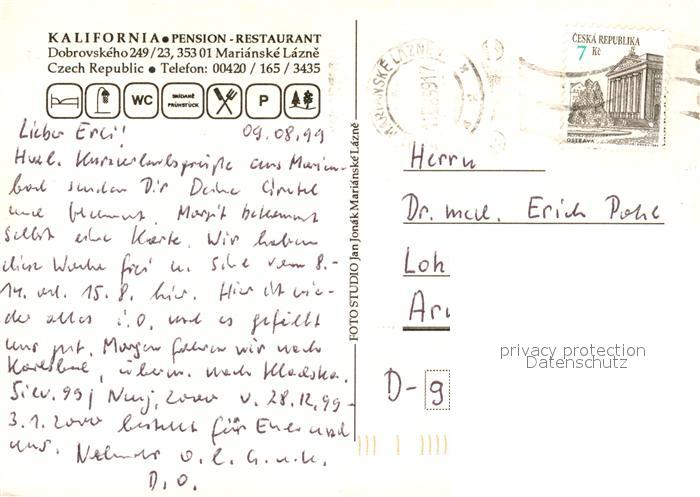 KALIFORNIA ● PENSION - RESTAURANT
Dobrovského 249/23, 353 01 Mariánské Lázně
Czech Republic ● Telefon: 00420 / 165 / 3435
WC
SNÍDANĚ
FRÜHSTÜCK
P
Lieber Erci! 09.08.99
Herzl. Kurzurlaubsgrüße aus Marien-
bad senden Dir Deine
und . Margit bekommt
selbst eine Karte. Wir haben
diese Woche frei u. sind vom 8.-
14. od. 15.8. hier. Hier ist wie-
der alles i.O. und es gefällt
uns gut. Morgen fahren wir nach
Karlsbad, nach Kladska.
99/ 2000 v. 28.12.99-
3.1.2000 bestellt für Euch und
uns.
D. O.
FOTO STUDIO Jan Jonák Mariánské Lázně
MARIÁNSKÉ LÁZNĚ
ČESKÁ REPUBLIKA
7 Kč
OSTRAVA
Herrn
Dr. med. Erich Pohl
Loh
D-9
privacy protection
Datenschutz